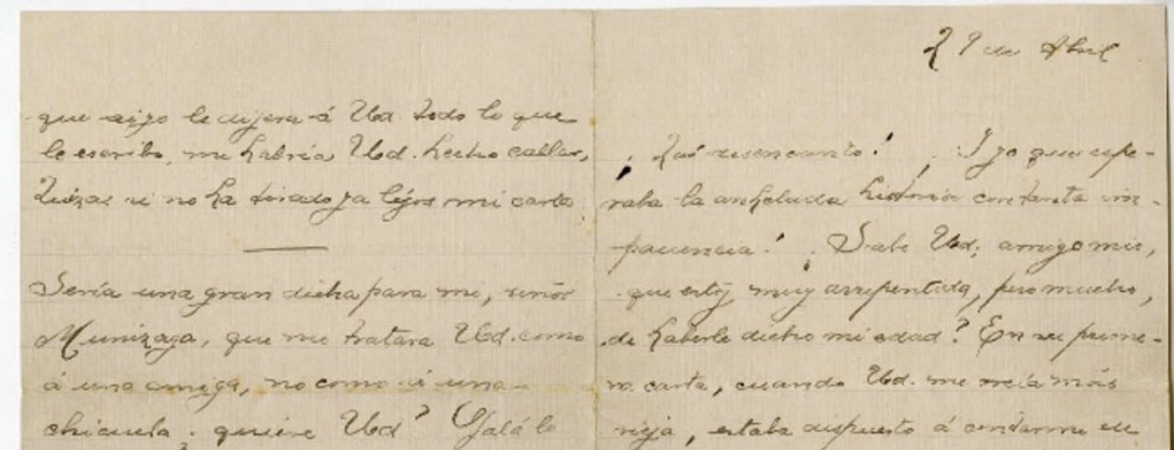 que si yo le dijera á Ud. todo lo que
le escribo, me habría Ud. hecho callar,
Quizás si no ha tirado ya léjos mi carta
Sería una gran dicha para mi, señor
Munizaga, que me tratara Ud. como
á una amiga, no como á una
chicuela; quiere Ud? Ojalá lo
29 de Abril
¡Qué desencanto! ¡I yo que espe-
raba la anhelada historia con tanta im-
paciencia! ¿Sabe Ud; amigo mio,
que estoy muy arrepentida, pero mucho,
de haberle dicho mi edad? En su prime-
ra carta, cuando Ud. me creía más
vieja, estaba dispuesto á contarme su